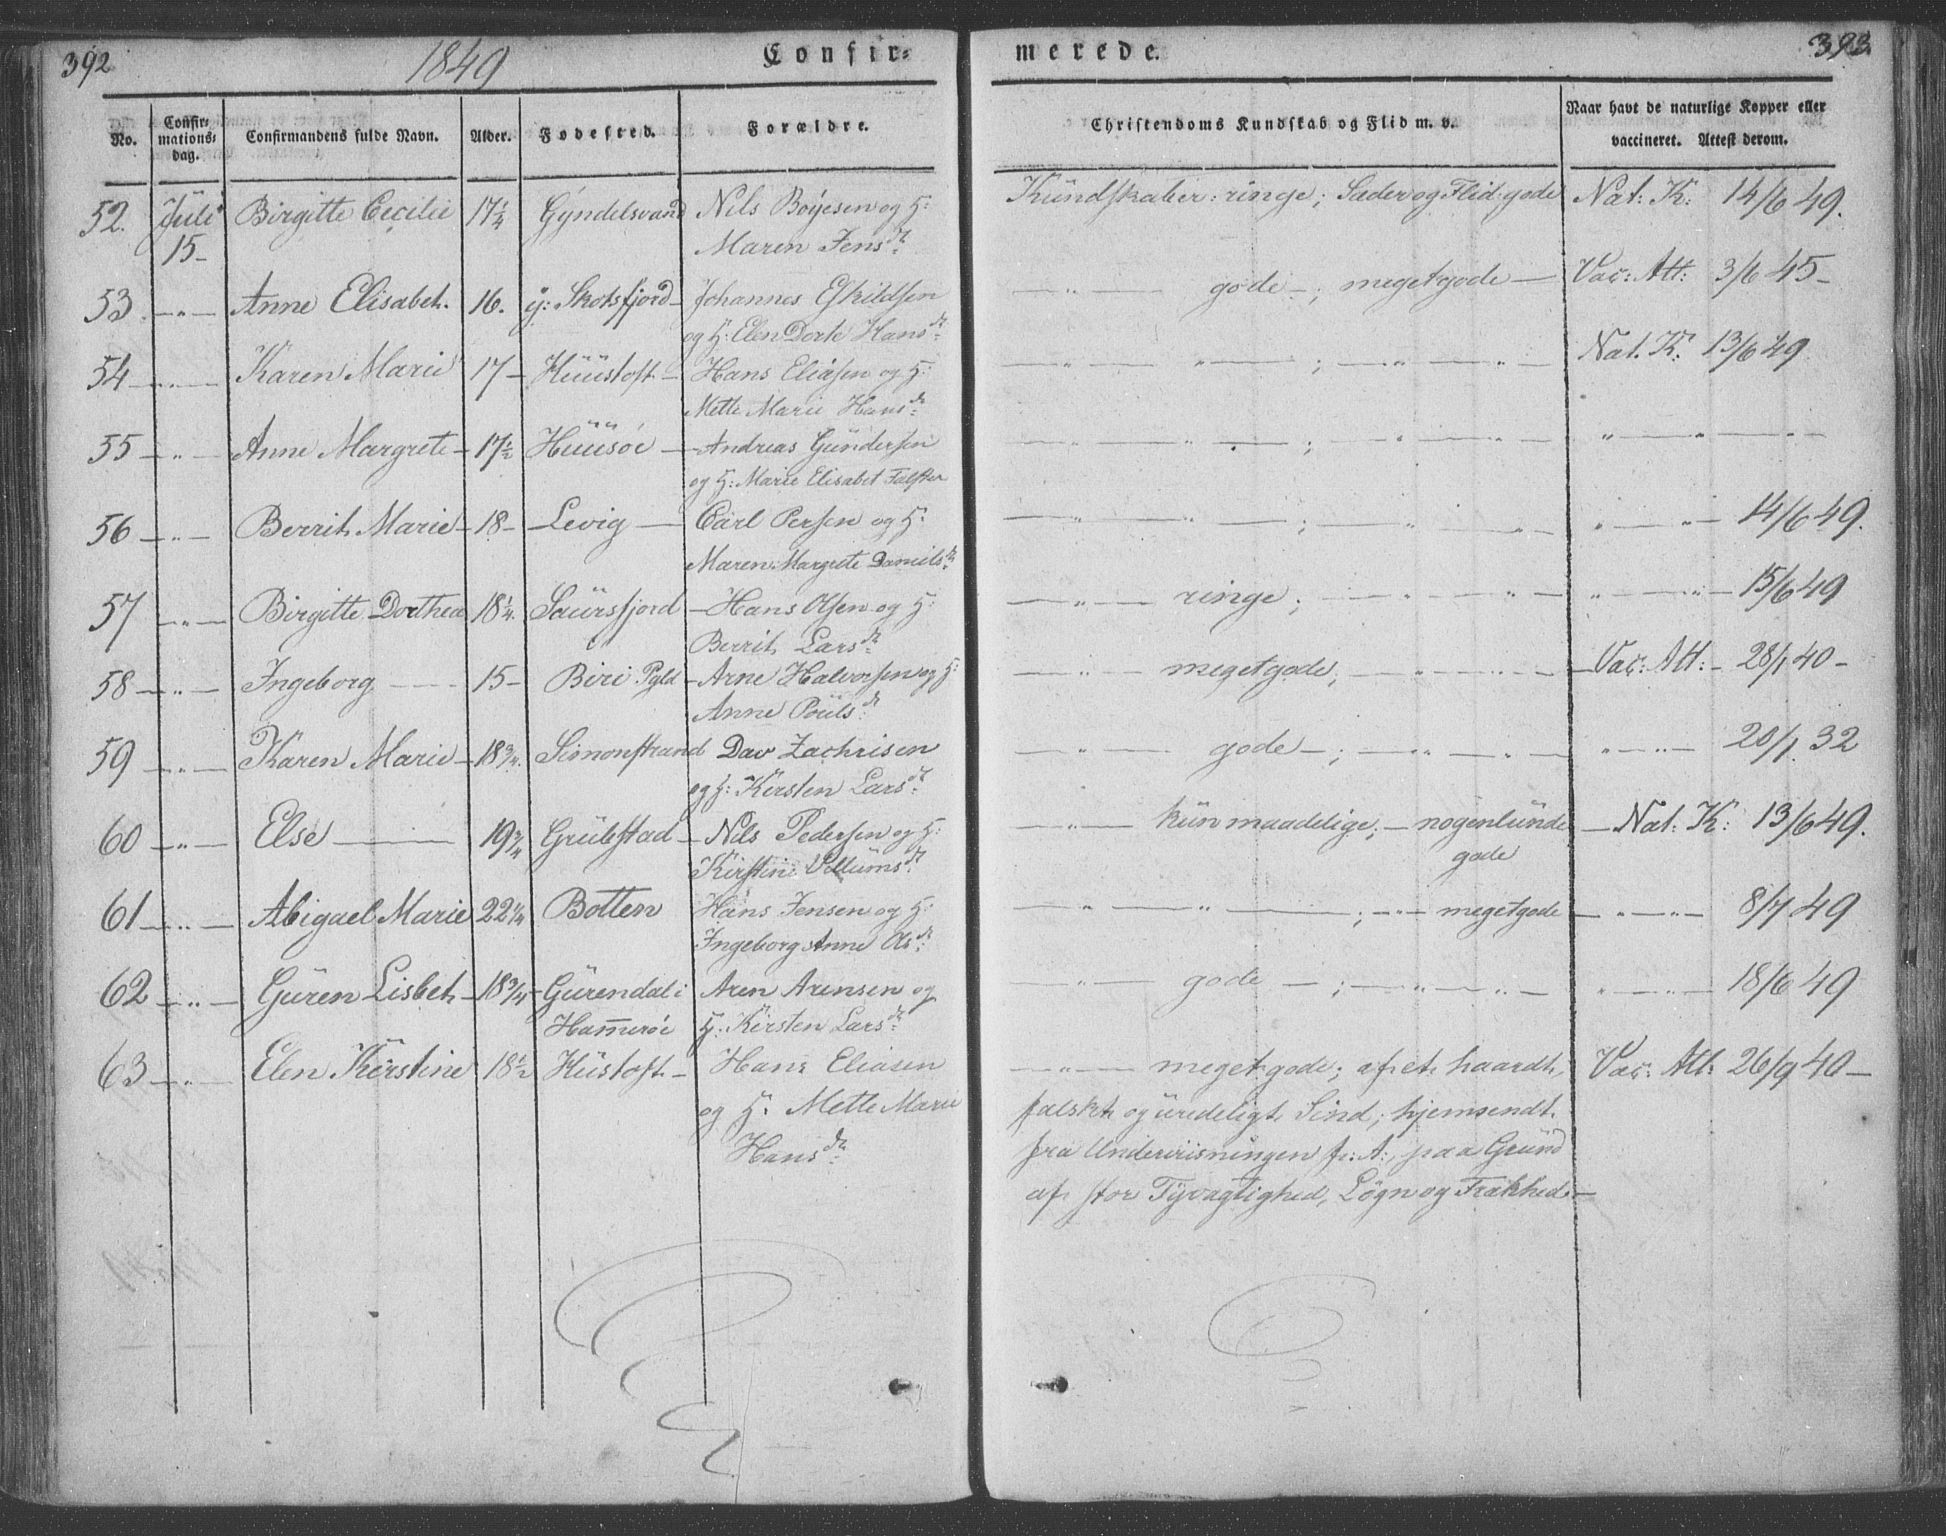 392
1849
Confir=
merede.
393.
No.
Confir=
mations=
dag.
Confirmandens fulde Navn.
Alder.
Fødested.
Forældre.
Christendoms Kundskab og Flid m. v.
Naar havt de naturlige Kopper eller
vaccineret. Attest derom.
52. Juli Birgitte Cecilie 17 1/4 Gyndelsvand Nils Boyesen og H: Kundskaber: ringe; Sæder og Flid: gode Nat: K: 14/6 49.
15- Maren Jensdr:
53 -"- Anne Elisabet. 16. y: Skotsfjord- Johannes Eskildsen -"- gode -; meget gode - Vac: Att: 3/6 45-
og H: Elen Dorte Hansdr:
54 -"- Karen Marie 17- Huustoft- Hans Eliasen og H: -"- " -; -"- " - Nat. K: 13/6 49
Mette Marie Hansdr:
55 -"- Anne Margrete- 17 1/2 Huusøe - Andreas Gundersen -"- -; -"- "- "- "-
og H: Marie Elisabet Falster
56 -"- Berrit Marie- 18- Levig - Carl Persen og H: -"- "- ; " - " "- "- 14/6 49.
Maren Margrete Danielsdr:
57 -"- Birgitte Dorthea 18 1/4. Saursfjord - Hans Olsen og H: -"- ringe; -"- "- "- "- 15/6 49
Berrit Larsdr:
58 -"- Ingeborg - 15- Biri Pgld - Arne Halvorsen og H: -"- meget gode; -"- "- - Vac: Att: - 28/1 40-
Anne Poulsdr:
59 -"- Karen Marie- 18 3/4. Simonstrand Dav Zachrisen -"- gode -; -"- "- "- "- 20/1. 32
og H: Kirsten Larsdr:
60 -"- Else - 19 3/4 Grubstad- Nils Pedersen og H: -"- kun maadelige; - nogenlunde - Nat: K: 13/6 49.
gode
Kirstine Villumsdr:
61 -"- Abigael Marie 22 1/4 Botten Hans Jensen og H: -"- "- ; -"- meget gode -"- "- 8/7 49
Ingeborg Anne Olsdr:
62 -"- Guren Lisbet- 18 3/4- Gurendal i Aren Arensen og -"- gode -; -"- "- "- "- 18/6 49
Hamerøe H: Kirsten Larsdr:
63 -"- Elen Kirstine 18 1/2 Hustoft- Hans Eliasen -"- meget gode; af et haardt, Vac: Att: 26/9 40-
og H: Mette Marie falskt og uredeligt Sind; hjemsendt
Hansdr: fra Underviisningen f: A: paa Grund
af stor Tyvagtighed, Løgn og Frækhed.-